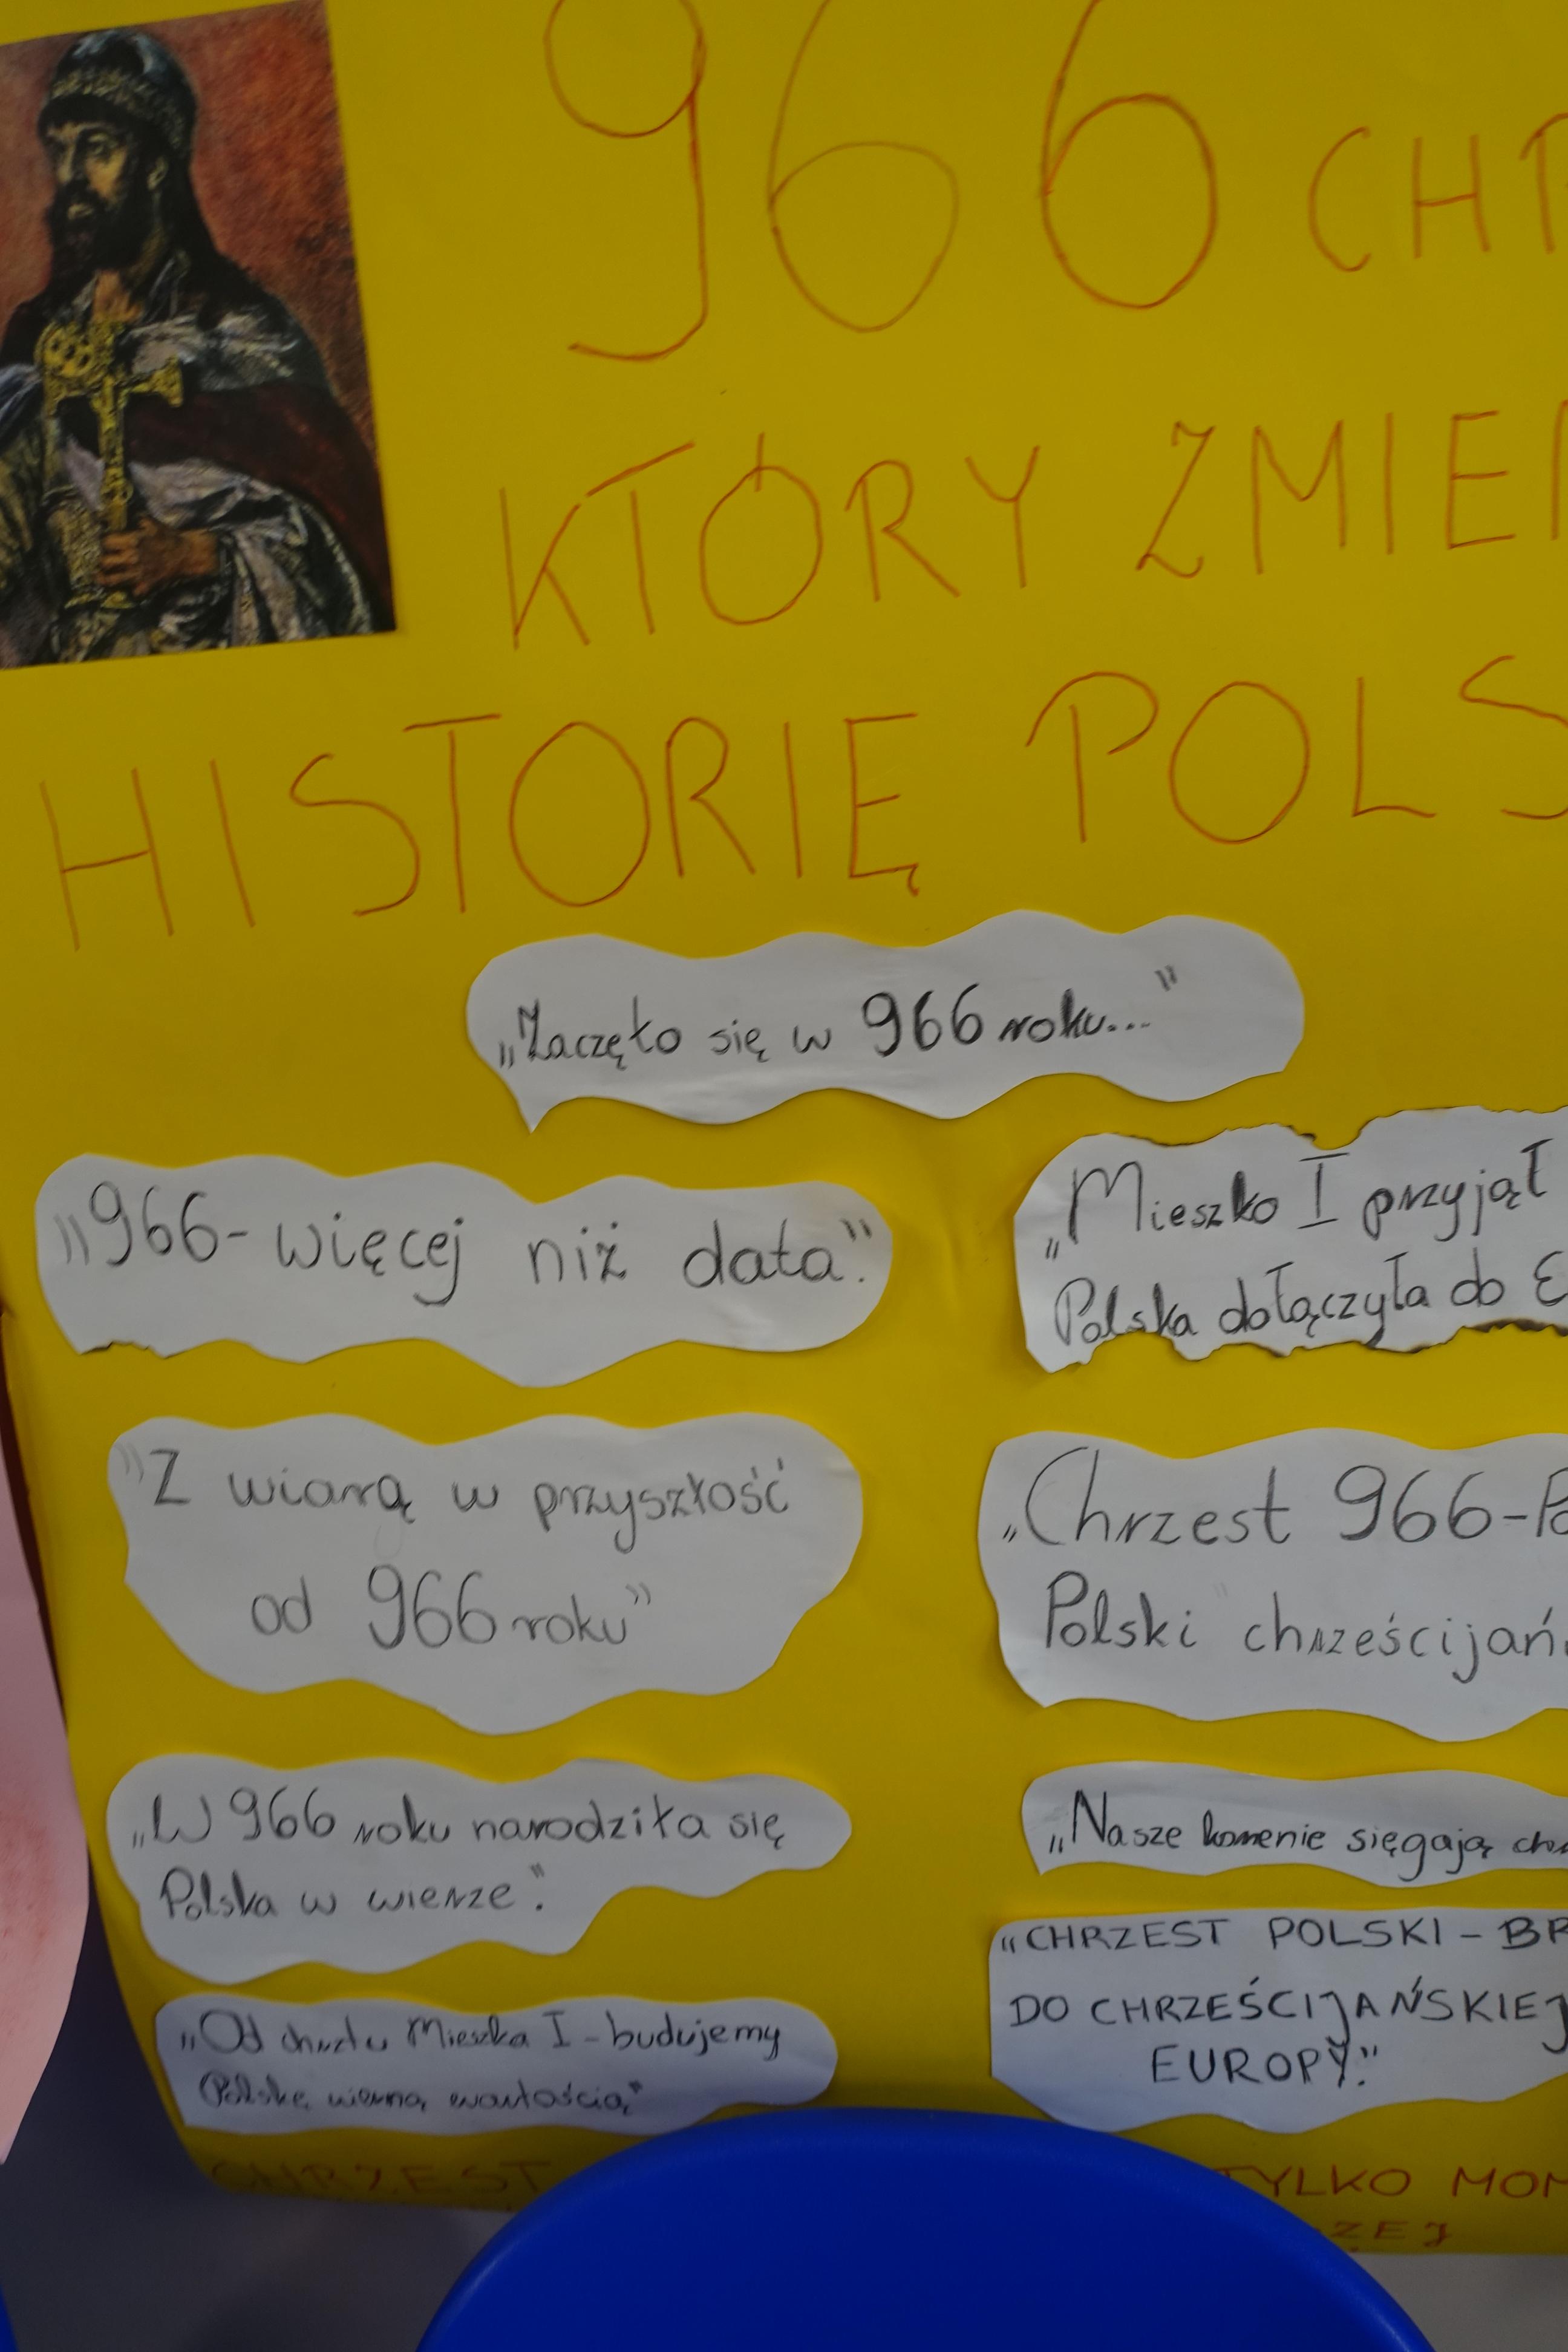 966 CHR
KTÓRY ZMIE
HISTORIĘ POLS
„Zaczęło się w 966 roku..."
„966-więcej niż data."
„Mieszko I przyjął
Polska dołączyła do E
"Z wiarą w przyszłość
od 966 roku"
„Chrzest 966-Po
Polski chrześcijań
„W 966 roku narodziła się
Polska w wierze".
„Nasze korzenie sięgają
„CHRZEST POLSKI - BR
DO CHRZEŚCIJAŃSKIEJ
EUROPY."
„Od chrztu Mieszka I - budujemy
Polskę wierną wartością"
CHRZEST TYLKO MOM
ZEJ